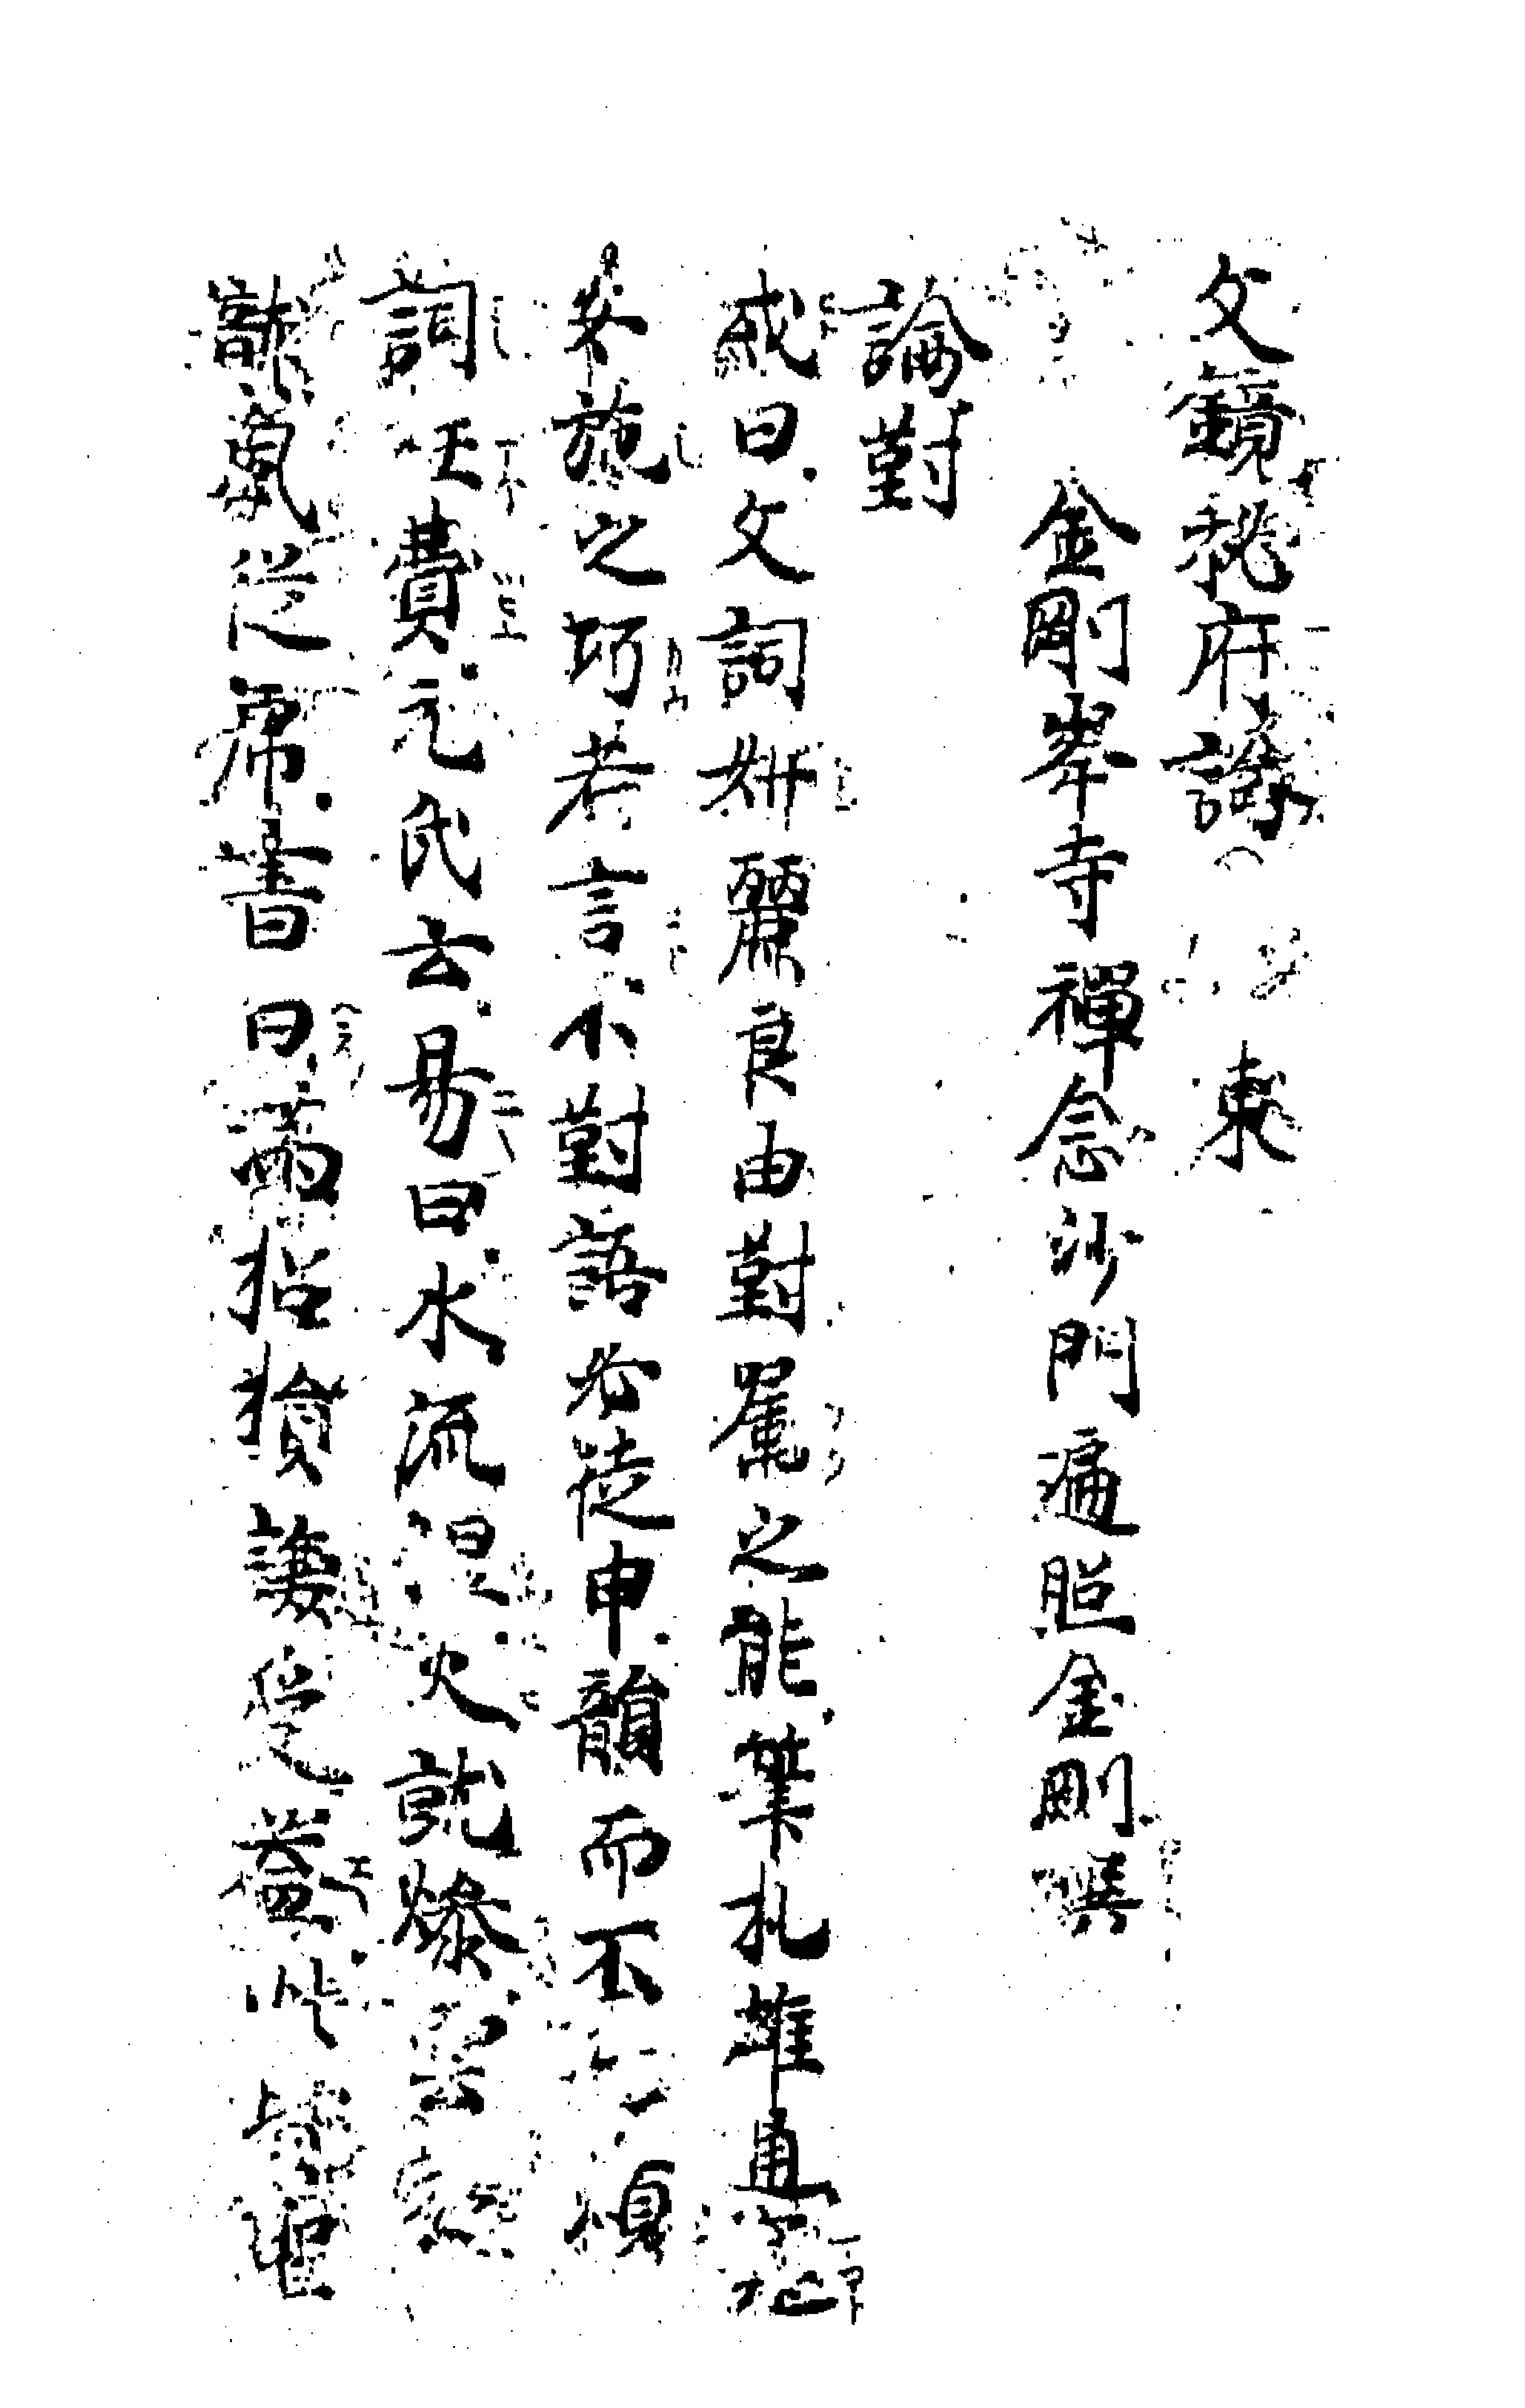 文鏡秘府論 東
金剛峯寺禪念沙門遍照金剛撰
論對
或曰文詞妍麗良由對屬之能筆札雄通
安施之巧若言不對語必徒申韻而不切煩
詞枉費元氏云易曰水流濕火就燥雲從
龍風從虎書曰滿招損謙受益此皆聖